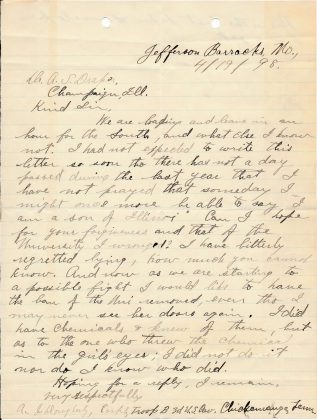 Jefferson Barracks Mo.,
4/19/98.
Dr. A. S. Draper,
Champaign, Ill.
Kind Sir,
We are and leave in an
hour for the South, and what else I know
not. I had not expected to write this
letter so soon tho there has not a day
passed during the last year that I
have not prayed that someday I
might once more be able to say I
am a son of Illinois. Can I hope
for your forgiveness and that of the
University I wronged? I have bitterly
regretted lying, how much you cannot
know. And now as we are starting to
a possible fight I would like to have
the ban of the Uni removed, even tho I
may never see her doors again. I did
have Chemicals & knew of them, but
as to the one who threw the chemical
in the girls eyes, I did not do it
nor do I know who did.
Hoping for a reply, I remain,
Very respectfully
Troop B 3d U.S. Cav. Chickamauga, Tenn